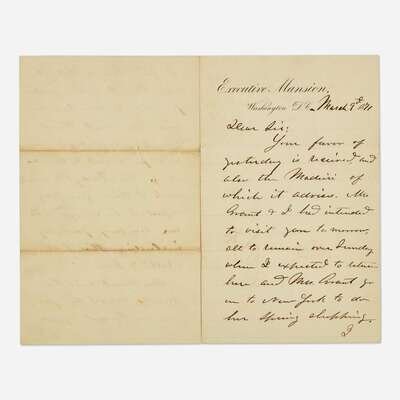 Executive Mansion,
Washington D.C. March 9th 1871
Dear Sir:
Your favor of
yesterday is received and
also the Madeira of
which it advises. Mrs
Grant & I had intended
to visit you to-morrow,
all to remain over Sunday
when I expected to return
here and Mrs. Grant go
on to New York to do
her spring shopping.
I